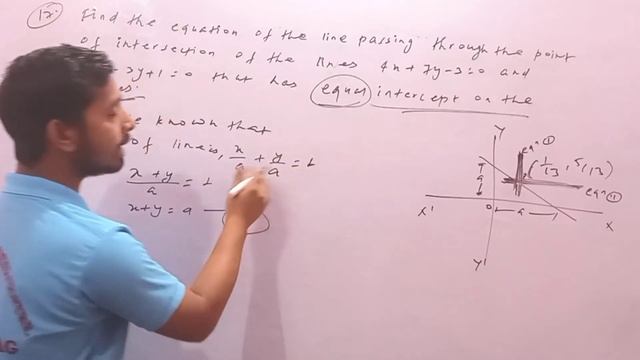 12. Find the equation of the line passing through the point
of intersection of the lines 4x+7y-3=0 and
3y+1=0 that has equal intercept on the
es.
e known that
of line is, x/a + y/a = 1
x+y/a = 1
x+y = a
Y
eqn ①
(1/13, 5/13)
a
eqn ②
X' O a X
Y'